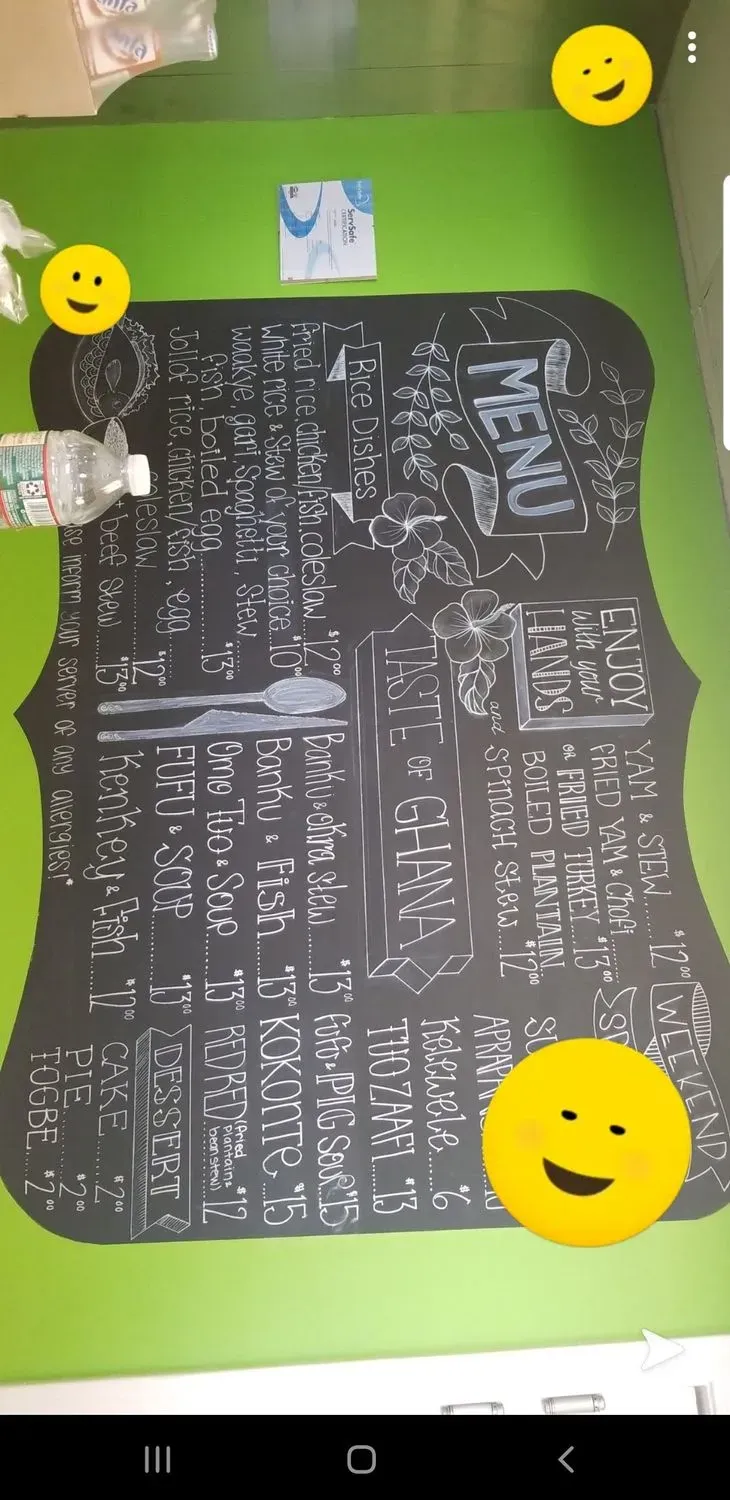 Fanta
ServSafe
CERTIFICATION
MENU
Rice Dishes
fried rice, chicken/fish, coleslaw $12.00
White rice & Stew of your choice $10.00
waakye, gari, Spaghetti, Stew
fish, boiled egg.......... $13.00
Jollof rice, chicken/fish, egg
coleslaw.......... $12.00
beef Stew... $13.00
inform your server of any allergies!*
ENJOY
with your
HANDS
TASTE OF GHANA
YAM & STEW...... $12.00
FRIED YAM & Chofi
OR FRIED TURKEY...$13.00
BOILED PLANTAIN
and SPINACH Stew...$12.00
Banku & Okra stew..... $13.00
Banku & Fish.... $13.00
Omo Tuo & Soup.... $13.00
FUFU & SOUP..... $13.00
Kenkey & Fish.... $12.00
WEEKEND
Kelewele..... $6
TUO ZAAFI...$13
fufu & PIG Soup $15
KOKONTE...$15
REDRED (fried plantain & bean stew) $12
DESSERT
CAKE..... $2.00
PIE....... $2.00
TOGBE... $2.00